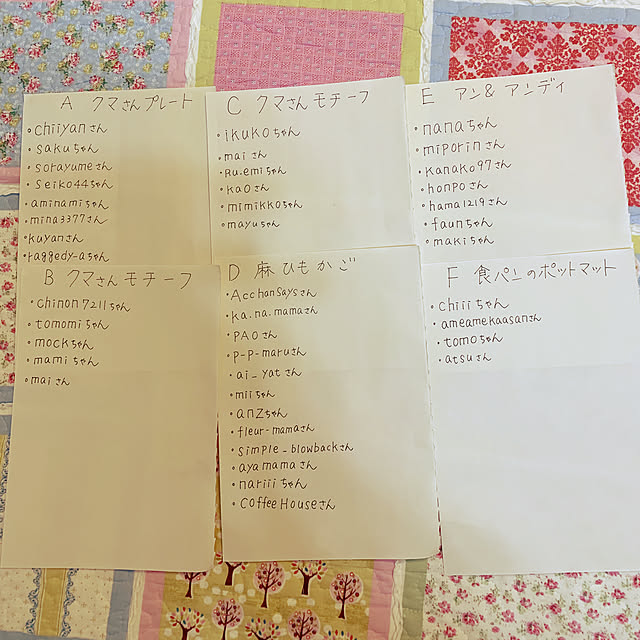 A クマさんプレート
・chiiyanさん
・sakuちゃん
・sorayumeさん
・seiko44ちゃん
・aminamiちゃん
・mina3377さん
・kuyanさん
・raggedy-aちゃん
B クマさんモチーフ
・chinon7211ちゃん
・tomomiちゃん
・mockちゃん
・mamiちゃん
・maiさん
C クマさんモチーフ
・ikukoちゃん
・maiさん
・Ru.emiちゃん
・kaoさん
・mimikkoちゃん
・mayuちゃん
D 麻ひもかご
・Acchonsaysさん
・ka.na.mamaさん
・PAOさん
・p-p-maruさん
・ai_yatさん
・miiちゃん
・anzちゃん
・fleur-mamaさん
・simple_blowbackさん
・ayamamaさん
・nariiiちゃん
・CoffeeHouseさん
E アン&アンディ
・nanaちゃん
・miporinさん
・kanako97さん
・honpoさん
・hama1219さん
・faunちゃん
・makiちゃん
F 食パンのポットマット
・chiiiちゃん
・ameamekaasanさん
・tomoちゃん
・atsuさん